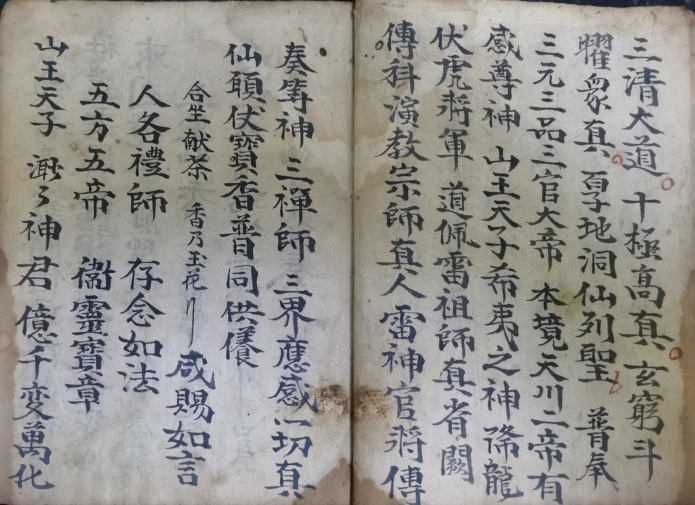 三清大道十極高真玄窮斗
曜眾真皇子地洞仙列聖普奉
三元三品三官大帝本境天川二帝有
感尊神山王天子希夷之神降龍
伏虎將軍道佩雷祖師真省闕
傳科演教宗師真人雷神官將傳
奏等神三禪師三界應感一切真
仙願伏寶香普同供養
合坐献茶香乃玉花咸賜如言
人各禮師存念如法
五方五帝衞靈寶章
山王天子渺々神君億千变萬化